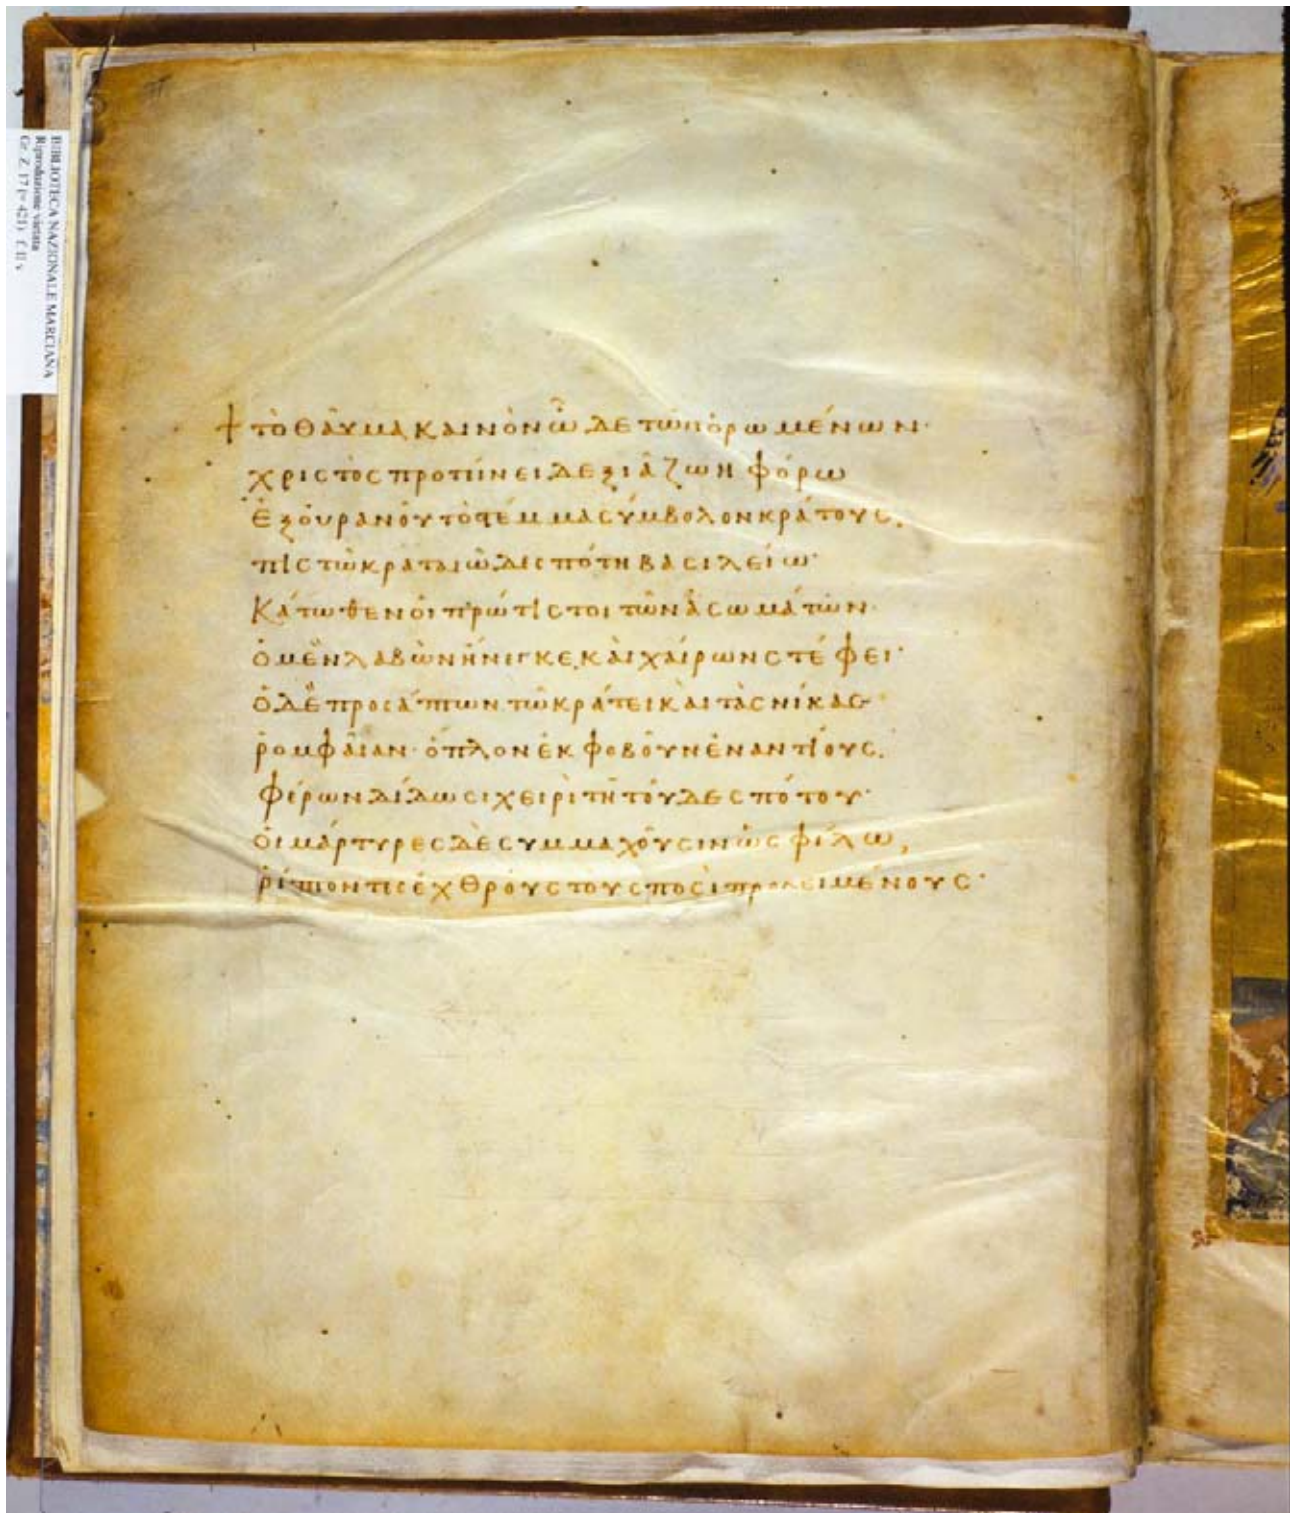 BIBLIOTECA NAZIONALE MARCIANA
Riproduzione vietata
Gr. Z. 17 (= 421) f. II v
τὸ θαῦμα καινὸν ὧδε τῶν ὁρωμένων·
χριστὸς προτείνει δεξιᾶ ζωηφόρω
ἐξ οὐρανοῦ τὸ στέμμα σύμβολον κράτους.
πιστῶ κραταιῶ δεσπότη βασιλείω·
κάτωθεν οἱ πρώτιστοι τῶν ἀσωμάτων·
ὁ μὲν λαβὼν ἤνιγκε, καὶ χαίρων στέφει·
ὁ δὲ προσάπτων τῶ κράτει καὶ τὰς νίκας
ῥομφαίαν· ὅπλον ἐκφοβοῦν ἐναντίους.
φέρων δίδωσι χειρὶ τῆ τοῦ δεσπότου·
οἱ μάρτυρες δὲ συμμαχοῦσιν ὡς φίλω,
ῥίπτοντες ἐχθροὺς τοὺς ποσὶ προκειμένους·